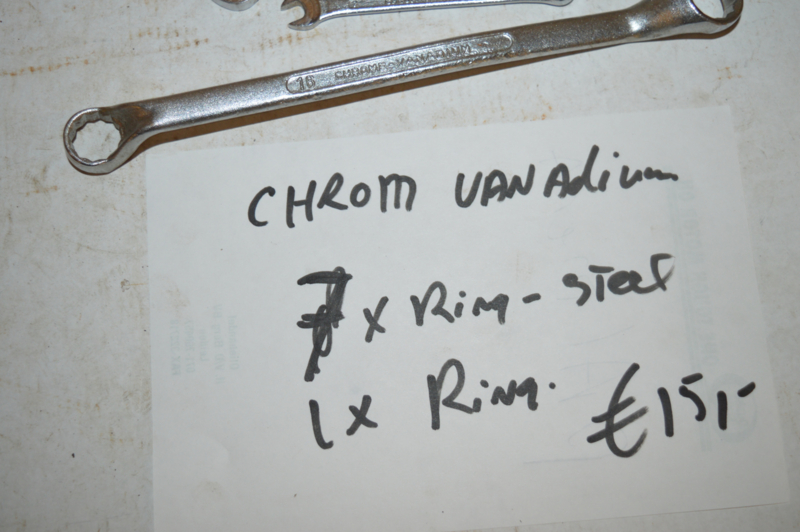 16 CHROME-VANADIUM
CHROM VANADium
7 x Ring - steek
1 x Ring.
€15,-